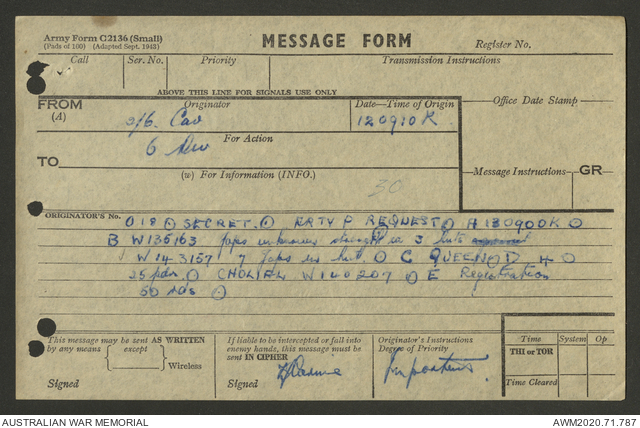 Army Form C2136 (Small)
(Pads of 100) (Adapted Sept. 1943)
MESSAGE FORM
Register No.
Call
Ser. No.
Priority
Transmission Instructions
ABOVE THIS LINE FOR SIGNALS USE ONLY
FROM
(A)
Originator
Date—Time of Origin
Office Date Stamp
2/6. Cav
120910K
For Action
6 Div
TO
(W) For Information (INFO.)
Message Instructions
GR
30
ORIGINATOR'S No.
018 SECRET. ARTY P REQUEST A 130900K
B W136163 Japs unknown strength in 3 huts
W143157 7 Japs in hut. C QUEEN D H
25 pdr W140207 E Registration
50 rds
This message may be sent AS WRITTEN
by any means
except
Wireless
Signed
If liable to be intercepted or fall into
enemy hands, this message must be
sent IN CIPHER
Signed
Originator's Instructions
Degree of Priority
Important.
Time
System
Op
THI or TOR
Time Cleared
AUSTRALIAN WAR MEMORIAL
AWM2020.71.787